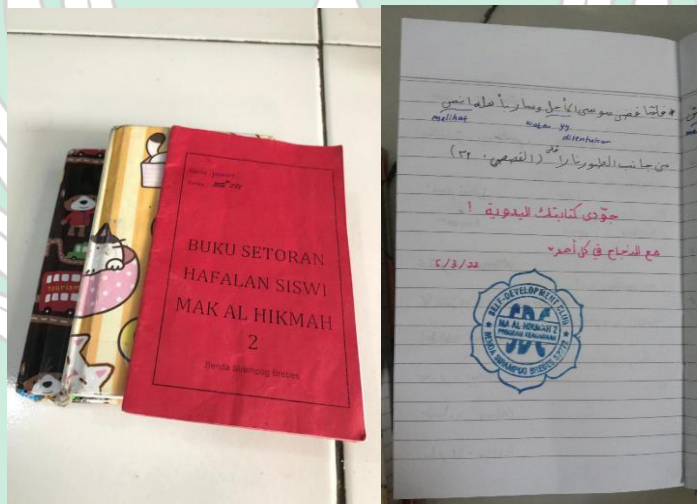 BUKU SETORAN
HAFALAN SISWI
MAK AL HIKMAH
2
Benda Sirampog Brebes
* فلمّا قضى موسى الأجل وسار بأهله انس
melihat waktu yg
ditentukan
من جانب الطور نارا قلى (القصص : ٢٩)
جوّدى كتابتك اليدوية !
مع النجاح في كل أمور
SELF-DEVELOPMENT CLUB
SDC
MA AL-HIKMAH 2
PROGRAM KEAGAMAAN
BENDA SIRAMPOG BREBES 52272